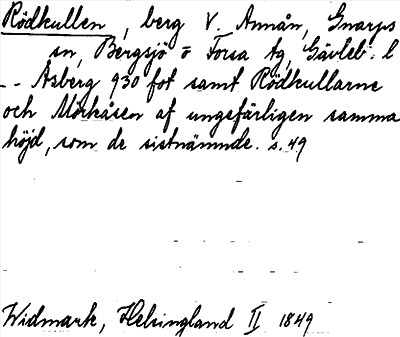 Rödkullen, berg V. Annån, Gnarps
sn, Bergsjö o Forsa tg, Gävleb. l
-- Åsberg 930 fot samt Rödkullarne
och Mörkåsen af ungefärligen samma
höjd, som de sistnämnde. s. 49
Widmark, Helsingland II 1849